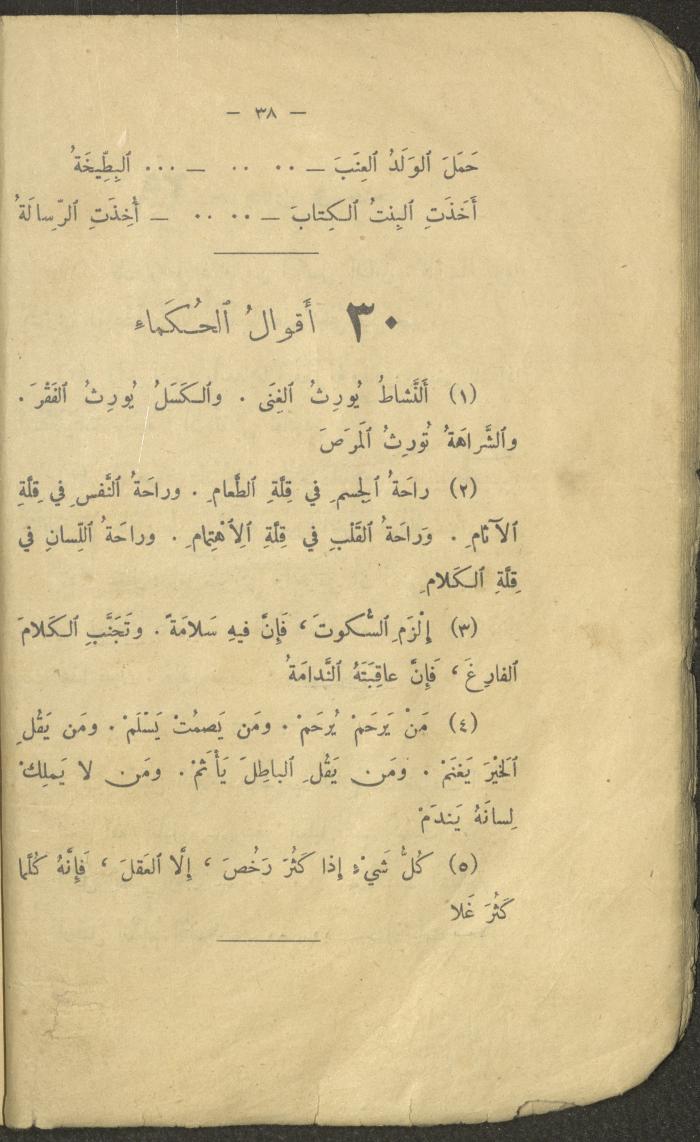 — ٣٨ —
حَمَلَ ٱلوَلَدُ ٱلعِنَبَ — ٠٠ ٠٠ — ٠٠٠ ٱلبِطِّيخَةُ
أَخَذَتِ ٱلبِنتُ ٱلكِتابَ — ٠٠ ٠٠ — أُخِذَتِ ٱلرِّسالَةُ
٣٠ أَقوالُ ٱلحُكَماءِ
(١) أَلنَّشاطُ يُورِثُ ٱلغِنَى . وٱلكَسَلُ يُورِثُ ٱلفَقْرَ .
وٱلشَّراهَةُ تُورِثُ ٱلمَرَصَ
(٢) راحَةُ ٱلجِسمِ في قِلَّةِ ٱلطَّعامِ . وراحَةُ ٱلنَّفسِ في قِلَّةِ
ٱلآثامِ . وَراحَةُ ٱلقَلْبِ في قِلَّةِ ٱلِٱهْتِمامِ . وراحَةُ ٱللِّسانِ في
قِلَّةِ ٱلكَلامِ
(٣) إِلْزَمِ ٱلسُّكوتَ ، فَإِنَّ فيهِ سَلامَةً . وتَجَنَّبِ ٱلكَلامَ
ٱلفارِغَ ، فَإِنَّ عاقِبَتَهُ ٱلنَّدامَةُ
(٤) مَنْ يَرحَمْ يُرحَمْ . ومَن يَصمُتْ يَسْلَمْ . ومَن يَقُلِ
ٱلخَيْرَ يَغنَمْ . ومَن يَقُلِ ٱلباطِلَ يَأْثَمْ . ومَن لا يَملِكْ
لِسانَهُ يَندَمْ
(٥) كُلُّ شَيْءٍ إِذا كَثُرَ رَخُصَ ، إِلَّا ٱلعَقلَ ، فَإِنَّهُ كُلَّما
كَثُرَ غَلا